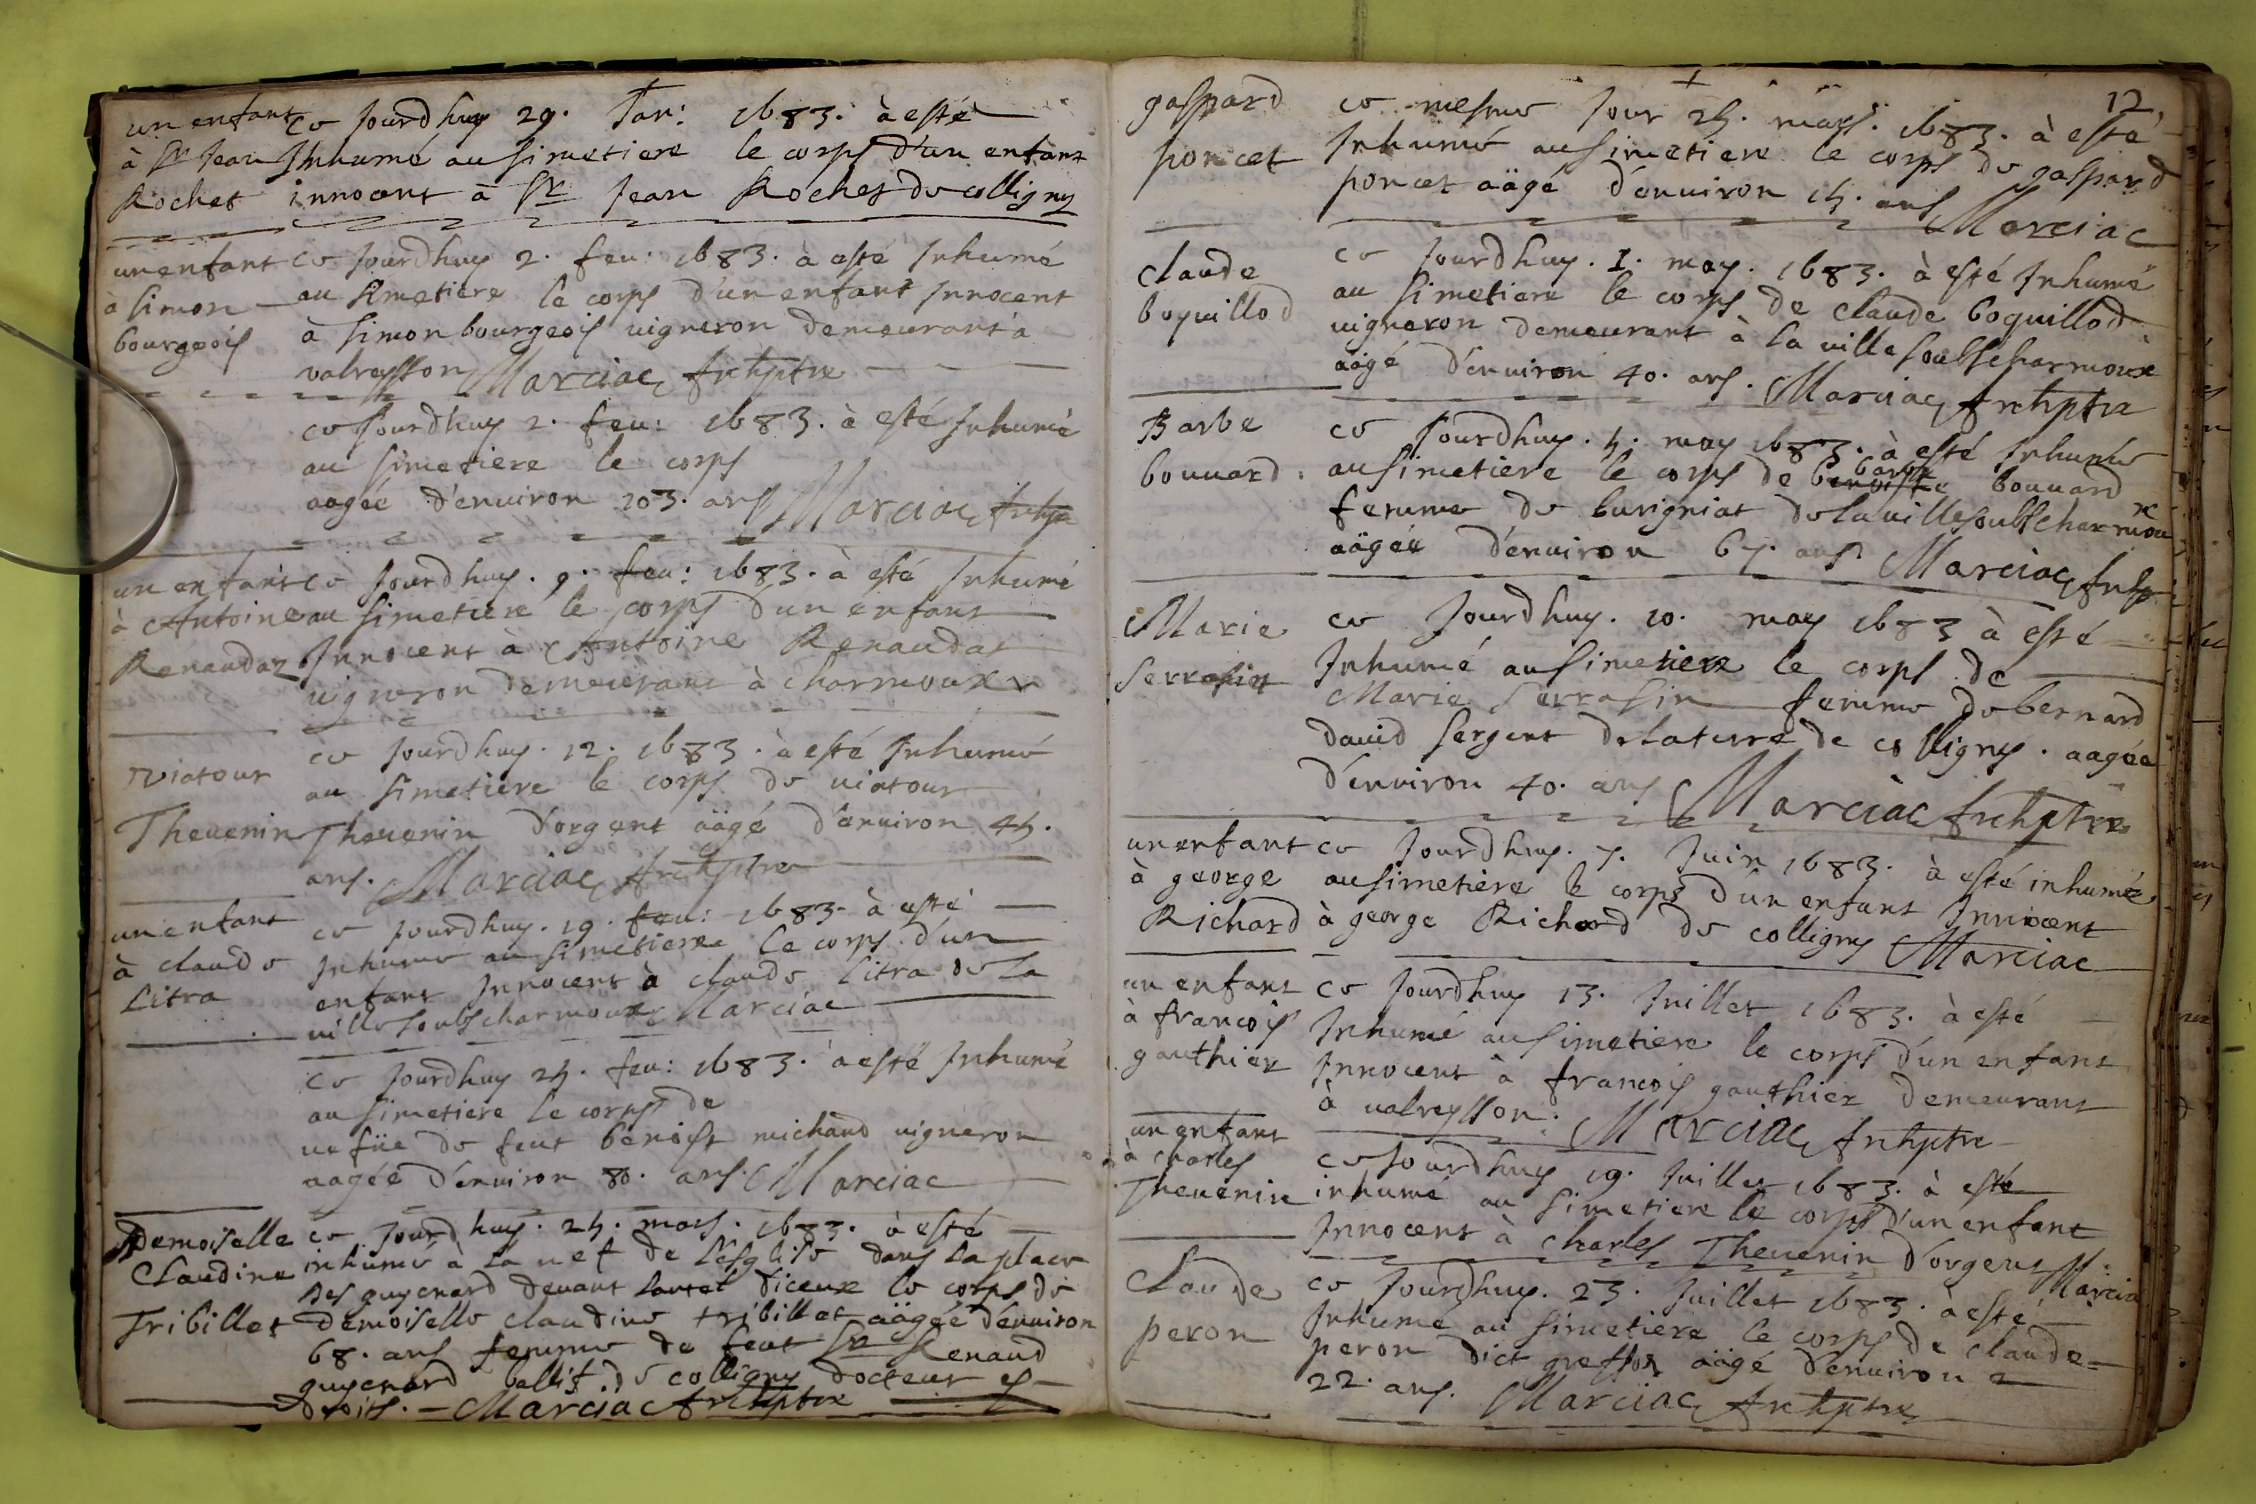 un enfant
à Sr Jean
Rochet
ce Jourdhuy 29. Jan: 1683. à esté
Inhumé au simetiere le corps d'un enfant
innocent à Sr Jean Rochet de colligny
un enfant
à simon
bourgeois
ce Jourdhuy 2. feu: 1683. à esté Inhumé
au simetiere le corps d'un enfant Innocent
à simon bourgeois uigneron demeurant à
valreysson Marciac Archptre
ce Jourdhuy 2. feu: 1683. à esté Inhumé
au simetiere le corps
aagée d'enuiron 103. ans Marciac Archp
un enfant
à Antoine
Renaudaz
ce Jourdhuy. 9. feu: 1683. à esté Inhumé
au simetiere le corps d'un enfant
Innocent à Antoine Renaudat
uigneron demeurant à charmoux
viatour
Theuenin
ce Jourdhuy. 12. 1683. à esté Inhumé
au simetiere le corps de uiatour
Theuenin d'orgent aâgé d'enuiron 45.
ans. Marciac Archptre
un enfant
à claude
Litra
ce Jourdhuy. 19. feu: 1683. à esté
Inhumé au simetiere le corps d'un
enfant Innocent à claude Litra de la
uille soubs charmoux Marciac
ce Jourdhuy 25. feu: 1683. à esté Inhumé
au simetiere le corps de
uefüe de feut benoist michaud uigneron
aagée d'enuiron 80. ans. Marciac
Demoiselle
Claudine
Tribillet
ce Jourdhuy. 25. mars. 1683. à esté
inhumé à la nef de l'esglise dans la place
des guyenard deuant lautel diceux le corps de
demoiselle claudine tribillet aâgée d'enuiron
68. ans femme de feut Sr Renaud
guyenard ballif de colligny docteur es
droits. Marciac Archptre
12
gaspard
poncet
ce mesme Jour 25. mars. 1683. à esté
Inhumé au simetiere le corps de gaspard
poncet aâgé d'enuiron 15. ans
Marciac
claude
boquillod
ce Jourdhuy. 1. may. 1683. à esté Inhumé
au simetiere le corps de claude boquillod
uigneron demeurant à la uille soubs charmoux
aâgé d'enuiron 40. ans. Marciac Archptre
Barbe
bouuard
ce Jourdhuy. 5. may 1683. à esté Inhumé
au simetiere le corps de barbe bouuard
femme de burigniat de la uille soubs charmoux
aâgée d'enuiron 67. ans Marciac Archp
Marie
serrasin
ce Jourdhuy. 10. may 1683 à esté
Inhumé au simetiere le corps de
Marie serrasin femme de bernard
dauid sergent de la terre de colligny. aagée
d'enuiron 40. ans Marciac Archptre
un enfant
à george
Richard
ce Jourdhuy. 7. Juin 1683. à esté inhumé
au simetiere le corps d'un enfant Innocent
à george Richard de colligny Marciac
un enfant
à francois
gauthier
ce Jourdhuy 13. Juillet 1683. à esté
Inhumé au simetiere le corps d'un enfant
Innocent à francois gauthier demeurant
à ualreysson. Marciac Archptre
un enfant
à charles
Theuenin
ce Jourdhuy 19. Juillet 1683. à esté
inhumé au simetiere le corps d'un enfant
Innocent à charles Theuenin d'orgent Marcia
Claude
peron
ce Jourdhuy. 23. Juillet 1683. à esté
Inhumé au simetiere le corps de claude
peron dict greffoz aâgé d'enuiron
22. ans. Marciac Archptre